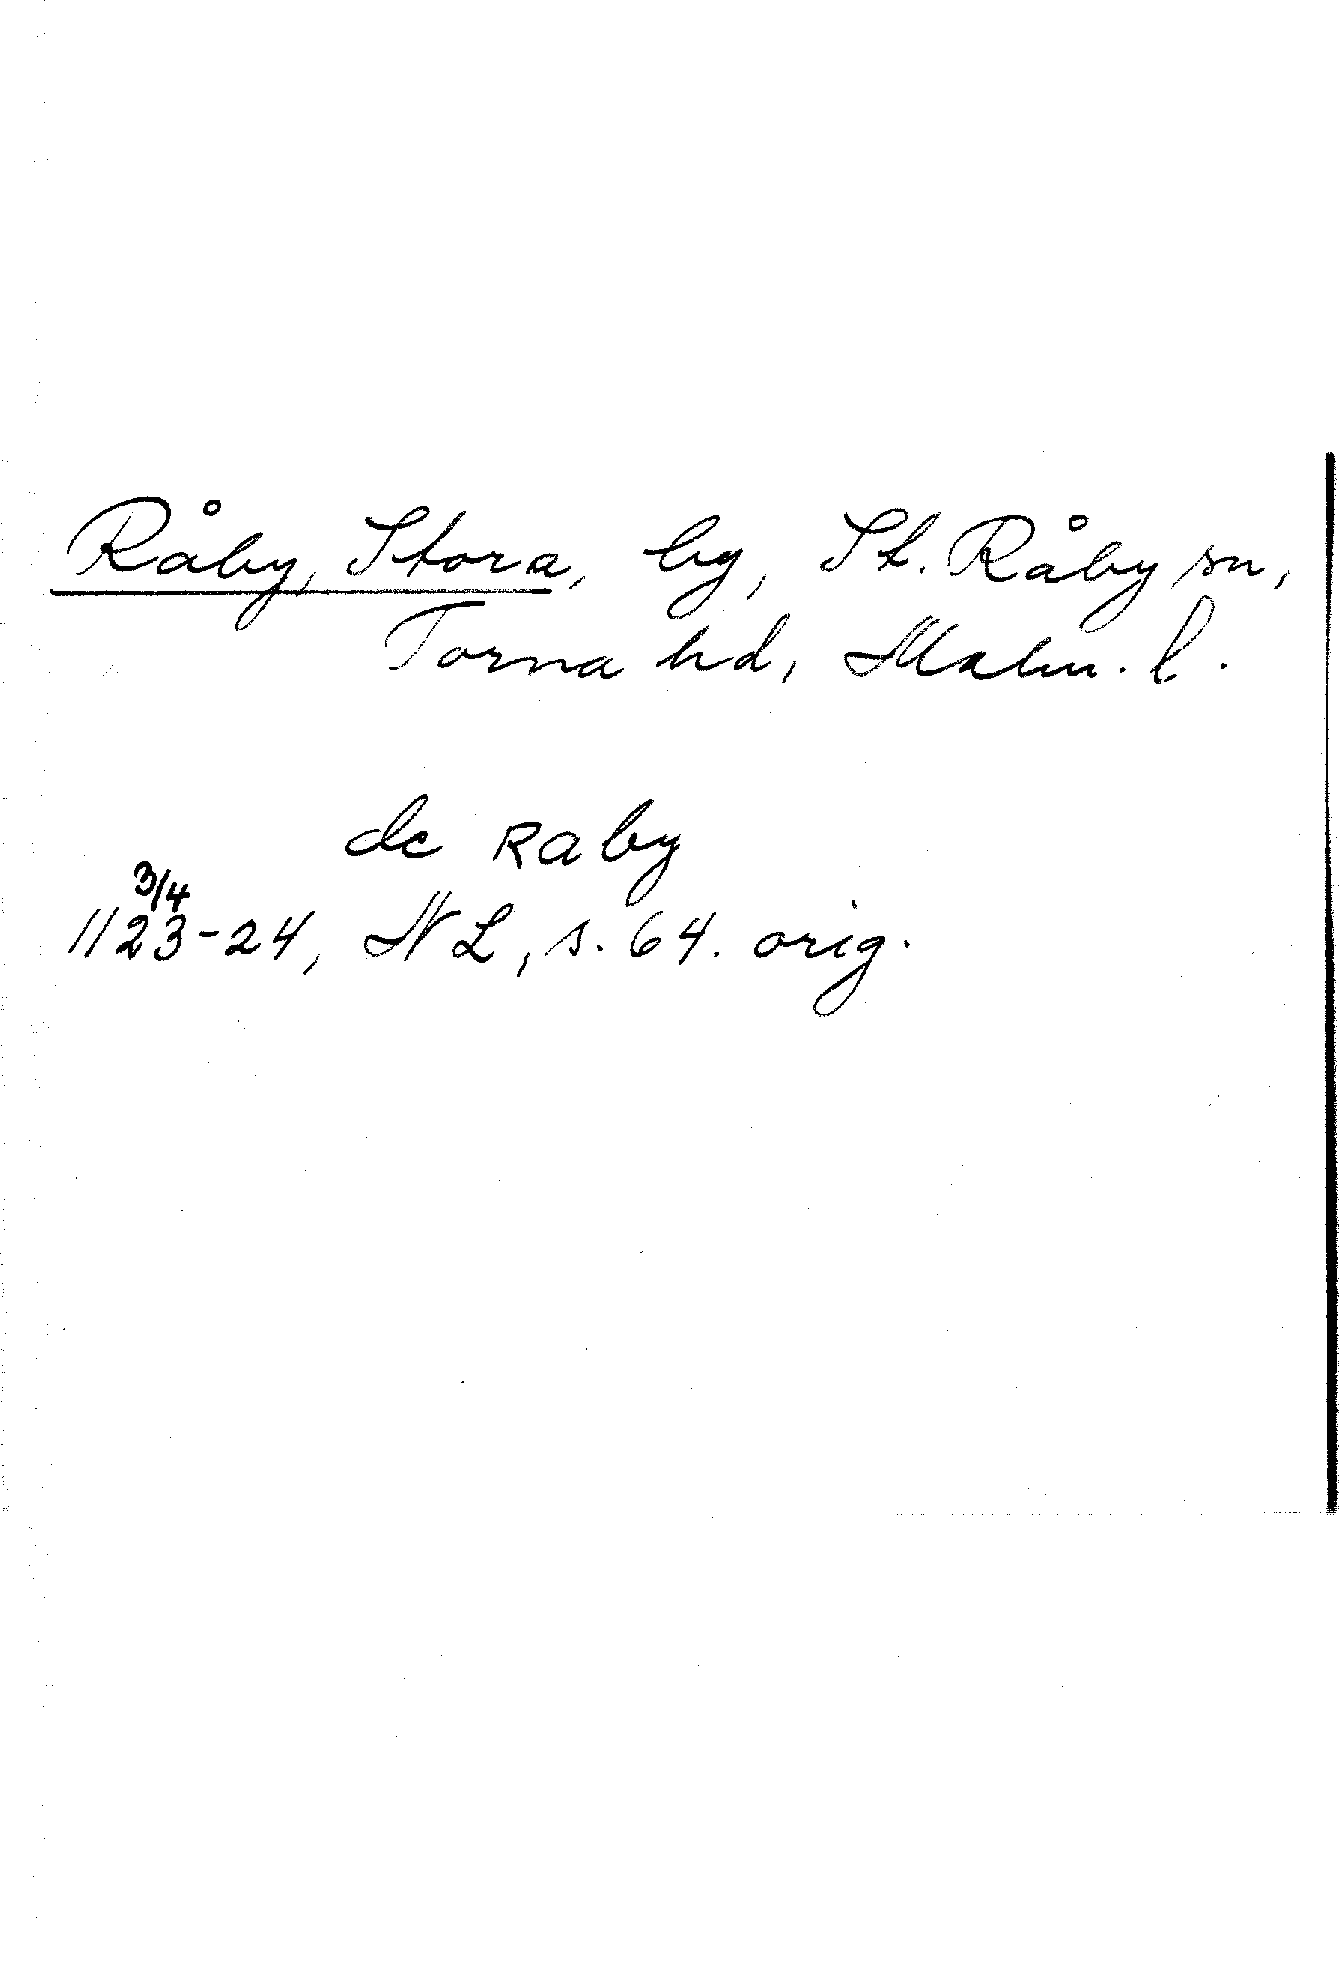 Råby, Stora, by, St. Råby sn,
Torna hd, Malm. l.
de Raby
3/4
1123-24, NL, s. 64. orig.